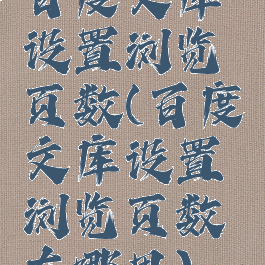 百度文库
设置浏览
页数(百度
文库设置
浏览页数
在哪里)